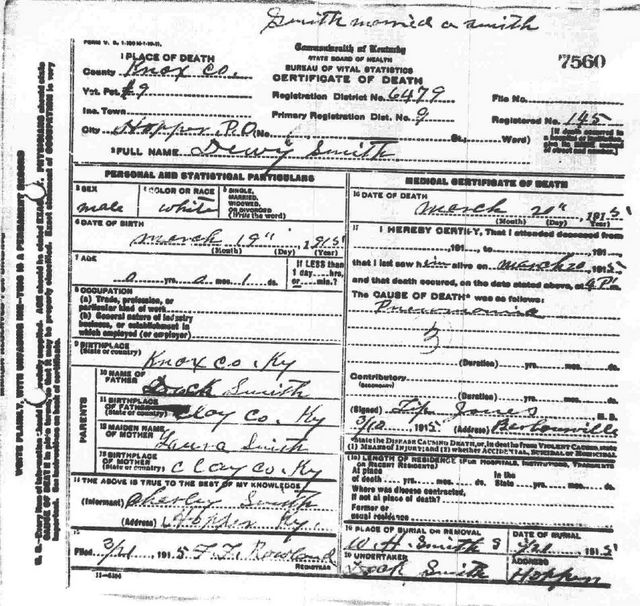 Smith married a Smith
FORM V. S. 1
Commonwealth of Kentucky
STATE BOARD OF HEALTH
BUREAU OF VITAL STATISTICS
CERTIFICATE OF DEATH
7560
1 PLACE OF DEATH
County Knox Co.
Vot. Pct. #9
Registration District No. 6479
File No.
Inc. Town
Primary Registration Dist. No. 9
Registered No. 145
City Hopper P.O. (No. St.; Ward)
[If death occurred in a hospital or institution give its NAME instead of street and number.]
2 FULL NAME Dewy Smith
PERSONAL AND STATISTICAL PARTICULARS
3 SEX
male
4 COLOR OR RACE
white
5 SINGLE, MARRIED, WIDOWED, OR DIVORCED (Write the word)
6 DATE OF BIRTH
March 19", 1915
(Month) (Day) (Year)
7 AGE
0 0 mos. 1 ds.
If LESS than 1 day....hrs. or....min.?
8 OCCUPATION
(a) Trade, profession, or particular kind of work
(b) General nature of industry business, or establishment in which employed (or employer)
9 BIRTHPLACE (State or country)
Knox Co. Ky
PARENTS
10 NAME OF FATHER
Dock Smith
11 BIRTHPLACE OF FATHER (State or country)
Clay Co. Ky
12 MAIDEN NAME OF MOTHER
Laura Smith
13 BIRTHPLACE OF MOTHER (State or country)
Clay Co. Ky
14 THE ABOVE IS TRUE TO THE BEST OF MY KNOWLEDGE
(Informant) Smith
(Address) Hopper Ky.
15
Filed 3/21 1915 REGISTRAR
MEDICAL CERTIFICATE OF DEATH
16 DATE OF DEATH
March 20", 1915
(Month) (Day) (Year)
17 I HEREBY CERTIFY, That I attended deceased from
, 191 , to , 191 ,
that I last saw him alive on March 20, 1915
and that death occurred, on the date stated above, at 4 P m.
The CAUSE OF DEATH* was as follows:
Pneumonia
3
(Duration) yrs. mos. ds.
Contributory
(SECONDARY)
(Duration) yrs. mos. ds.
(Signed) Jones M. D.
1915 (Address)
*State the DISEASE CAUSING DEATH, or, in deaths from VIOLENT CAUSES, state (1) MEANS OF INJURY; and (2) whether ACCIDENTAL, SUICIDAL or HOMICIDAL.
18 LENGTH OF RESIDENCE (FOR HOSPITALS, INSTITUTIONS, TRANSIENTS OR RECENT RESIDENTS)
At place of death yrs. mos. ds. In the State yrs. mos. ds.
Where was disease contracted, if not at place of death?
Former or usual residence
19 PLACE OF BURIAL OR REMOVAL
W. H. Smith
DATE OF BURIAL
3/21 1915
20 UNDERTAKER
Dock Smith
ADDRESS
Hopper
WRITE PLAINLY, WITH UNFADING INK—THIS IS A PERMANENT RECORD